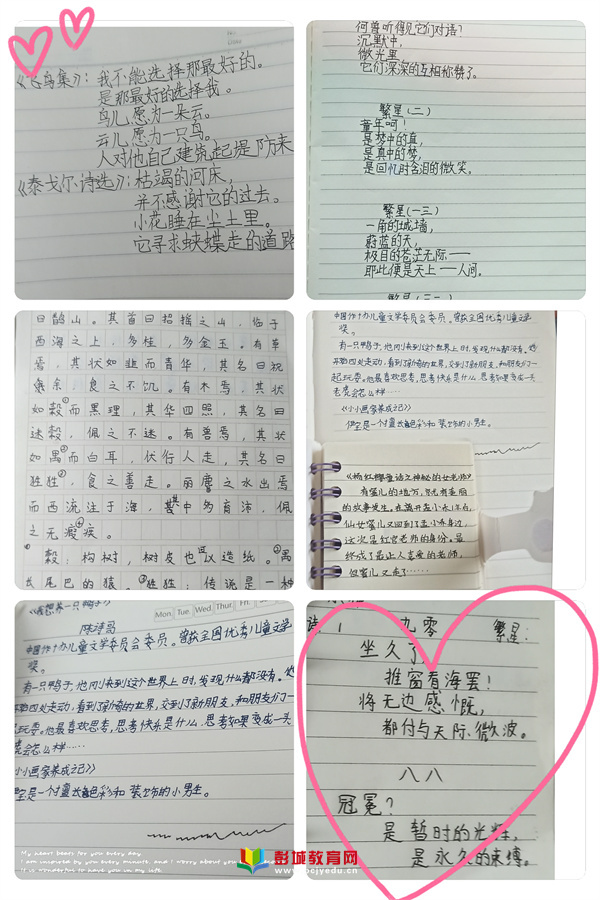 《飞鸟集》：我不能选择那最好的。
是那最好的选择我。
鸟儿愿为一朵云。
云儿愿为一只鸟。
人对他自己建筑起堤防来
《泰戈尔·诗选》：枯竭的河床，
并不感谢它的过去。
小花睡在尘土里。
它寻求蛱蝶走的道路
何曾听得见它们对语？
沉默中，
微光里，
它们深深的互相称赞了。
繁星（二）
童年呵！
是梦中的真，
是真中的梦，
是回忆时含泪的微笑。
繁星（一三）
一角的城墙，
蔚蓝的天，
极目的苍茫无际——
即此便是天上——人间。
曰鹊山。其首曰招摇之山，临于
西海之上，多桂，多金玉。有草
焉，其状如韭而青华，其名曰祝
馀，食之不饥。有木焉，其状
如榖①而黑理，其华四照，其名曰
迷榖，佩之不迷。有兽焉，其状
如禺②而白耳，伏行人走，其名曰
狌狌③，食之善走。丽麂之水出焉
而西流注于海，其中多育沛，佩
之无瘕④疾。
榖：构树，树皮可以造纸。②禺
长尾巴的猿。③狌狌：传说是一种
中国作协儿童文学委员会委员。曾获全国优秀儿童文学
奖。
有一只鸭子，他刚来到这个世界上时，发现什么都没有。他
开始四处走动，看到了新奇的世界，交到了新朋友，和朋友们一
起玩耍。他最喜欢思考，思考快乐是什么，思考如果变成一头
老虎会怎么样……
《小小画家养成记》
《杨红樱童话之神秘的女老师》
有蜜儿的地方，就有美丽
的故事发生。在离开孟小乐1年后，
仙女蜜儿又回到了孟小乐身边，
这次是红宫老师的身份。最
终成了最让人喜爱的老师，
但蜜儿又走了……
《我想养一只鸭子》
Mon. Tue. Wed. Thur. Fri.
陈诗哥
中国作协儿童文学委员会委员。曾获全国优秀儿童文学
奖。
有一只鸭子，他刚来到这个世界上时，发现什么都没有。他
开始四处走动，看到了新奇的世界，交到了新朋友，和朋友们一
起玩耍。他最喜欢思考，思考快乐是什么，思考如果变成一头
老虎会怎么样……
《小小画家养成记》
是一个擅长色彩和装饰的小男生。
My heart beats for you every day.
I am inspired by you every minute, and I worry about you
It is wonderful to have you in my life.
一九零 繁星：
坐久了，
推窗看海罢！
将无边感慨，
都付与天际微波。
八八
冠冕？
是暂时的光辉，
是永久的束缚。
彭城教育网
www.pcjyedu.cn